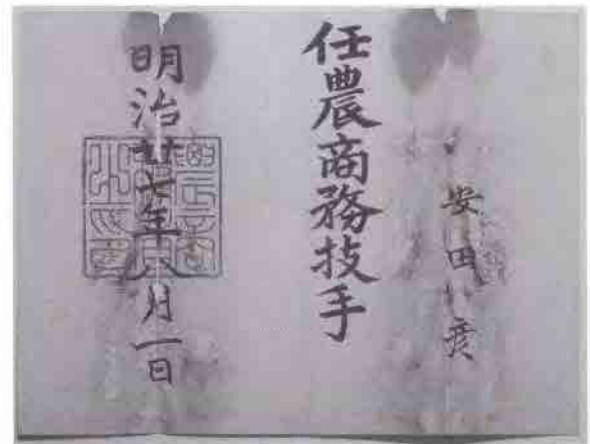 安田 彦
任農商務技手
明治廿七年八月一日